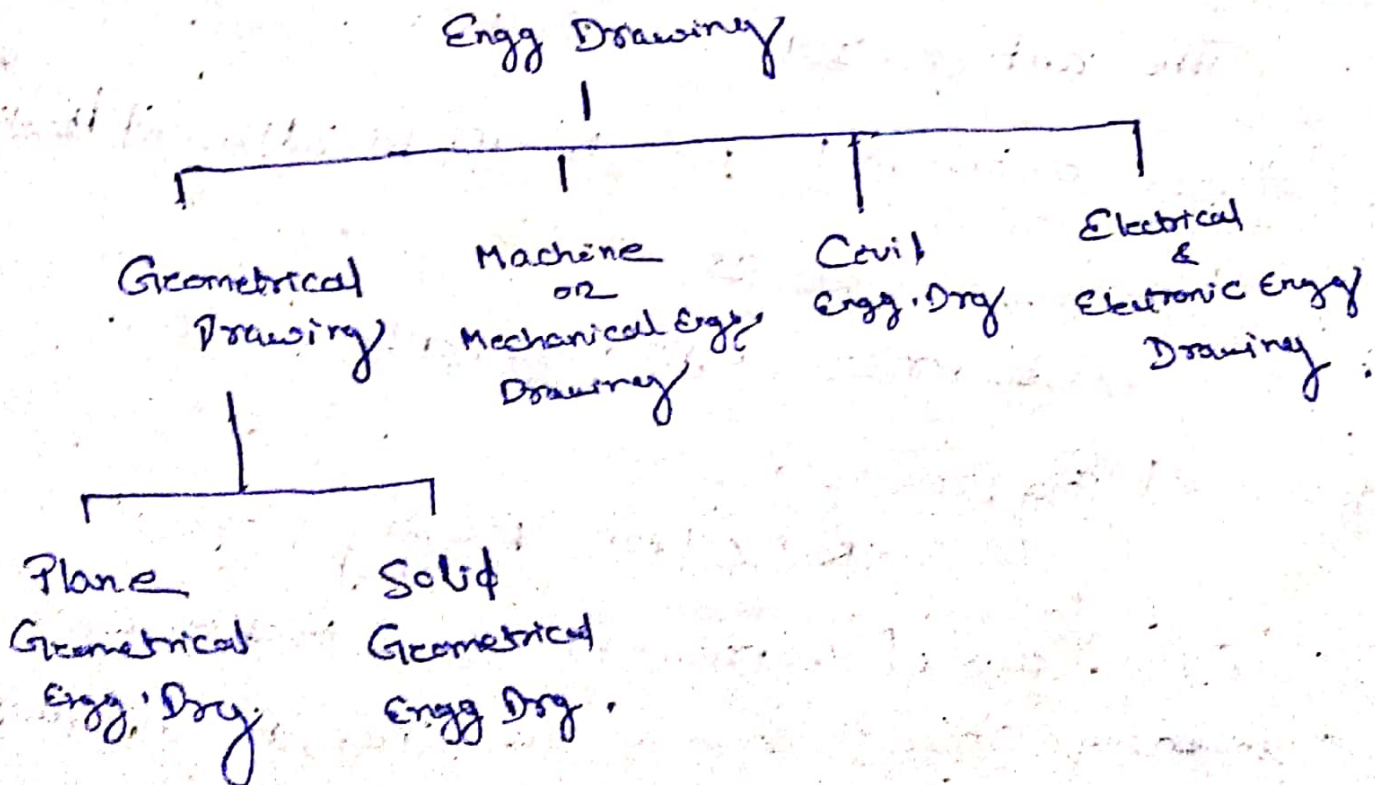 Engg Drawing
Geometrical
Drawing
Machine
or
Mechanical Engg.
Drawing
Civil
Engg. Drg.
Electrical
&
Electronic Engg
Drawing.
Plane
Geometrical
Engg. Drg.
Solid
Geometrical
Engg Drg.